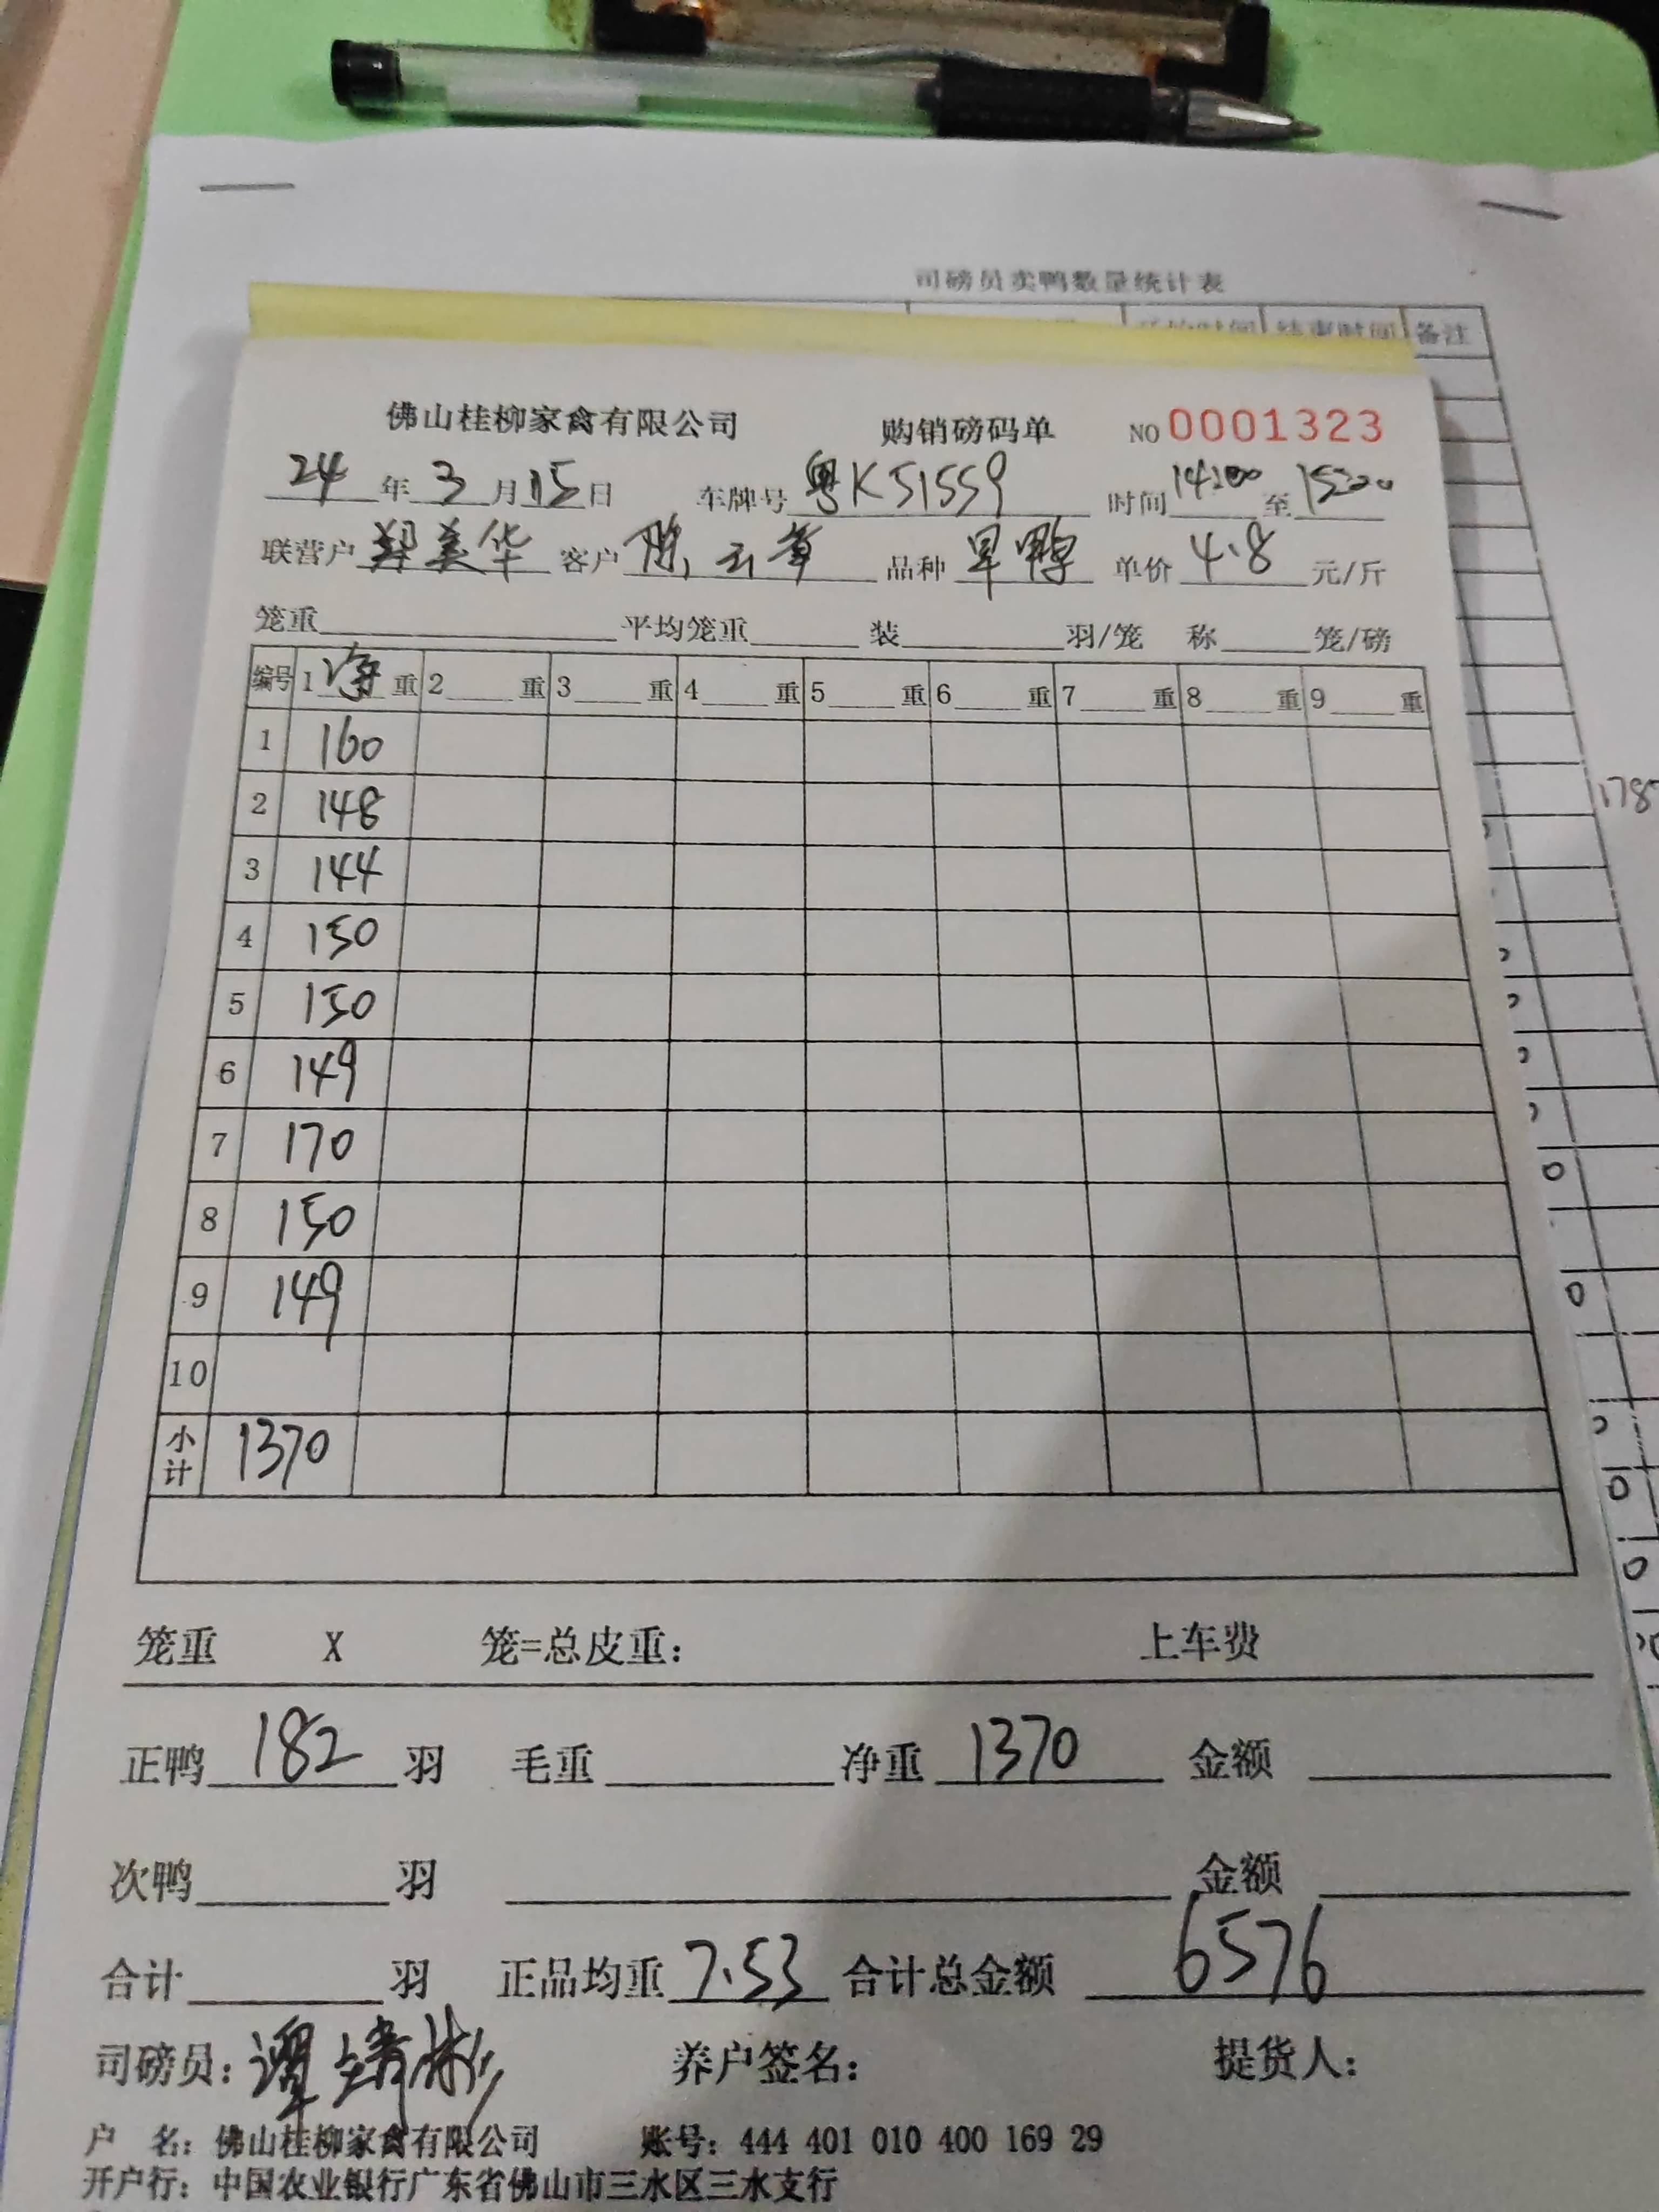 司磅员卖鸭数量统计表
备注
佛山桂柳家禽有限公司 购销磅码单 NO 0001323
24年3月15日 车牌号粤K51559 时间14:00至15:20
联营户郑美华 客户陈云章 品种旱鸭 单价4.8元/斤
笼重 平均笼重 装 羽/笼 称 笼/磅
编号 1净重 2 重 3 重 4 重 5 重 6 重 7 重 8 重 9 重
1 160
2 148
3 144
4 150
5 150
6 149
7 170
8 150
9 149
10
小计 1370
178
笼重 X 笼=总皮重: 上车费
正鸭182羽 毛重 净重1370 金额
次鸭 羽 金额
合计 羽 正品均重7.53 合计总金额6576
司磅员: 养户签名: 提货人:
户 名: 佛山桂柳家禽有限公司 账号: 444 401 010 400 169 29
开户行: 中国农业银行广东省佛山市三水区三水支行